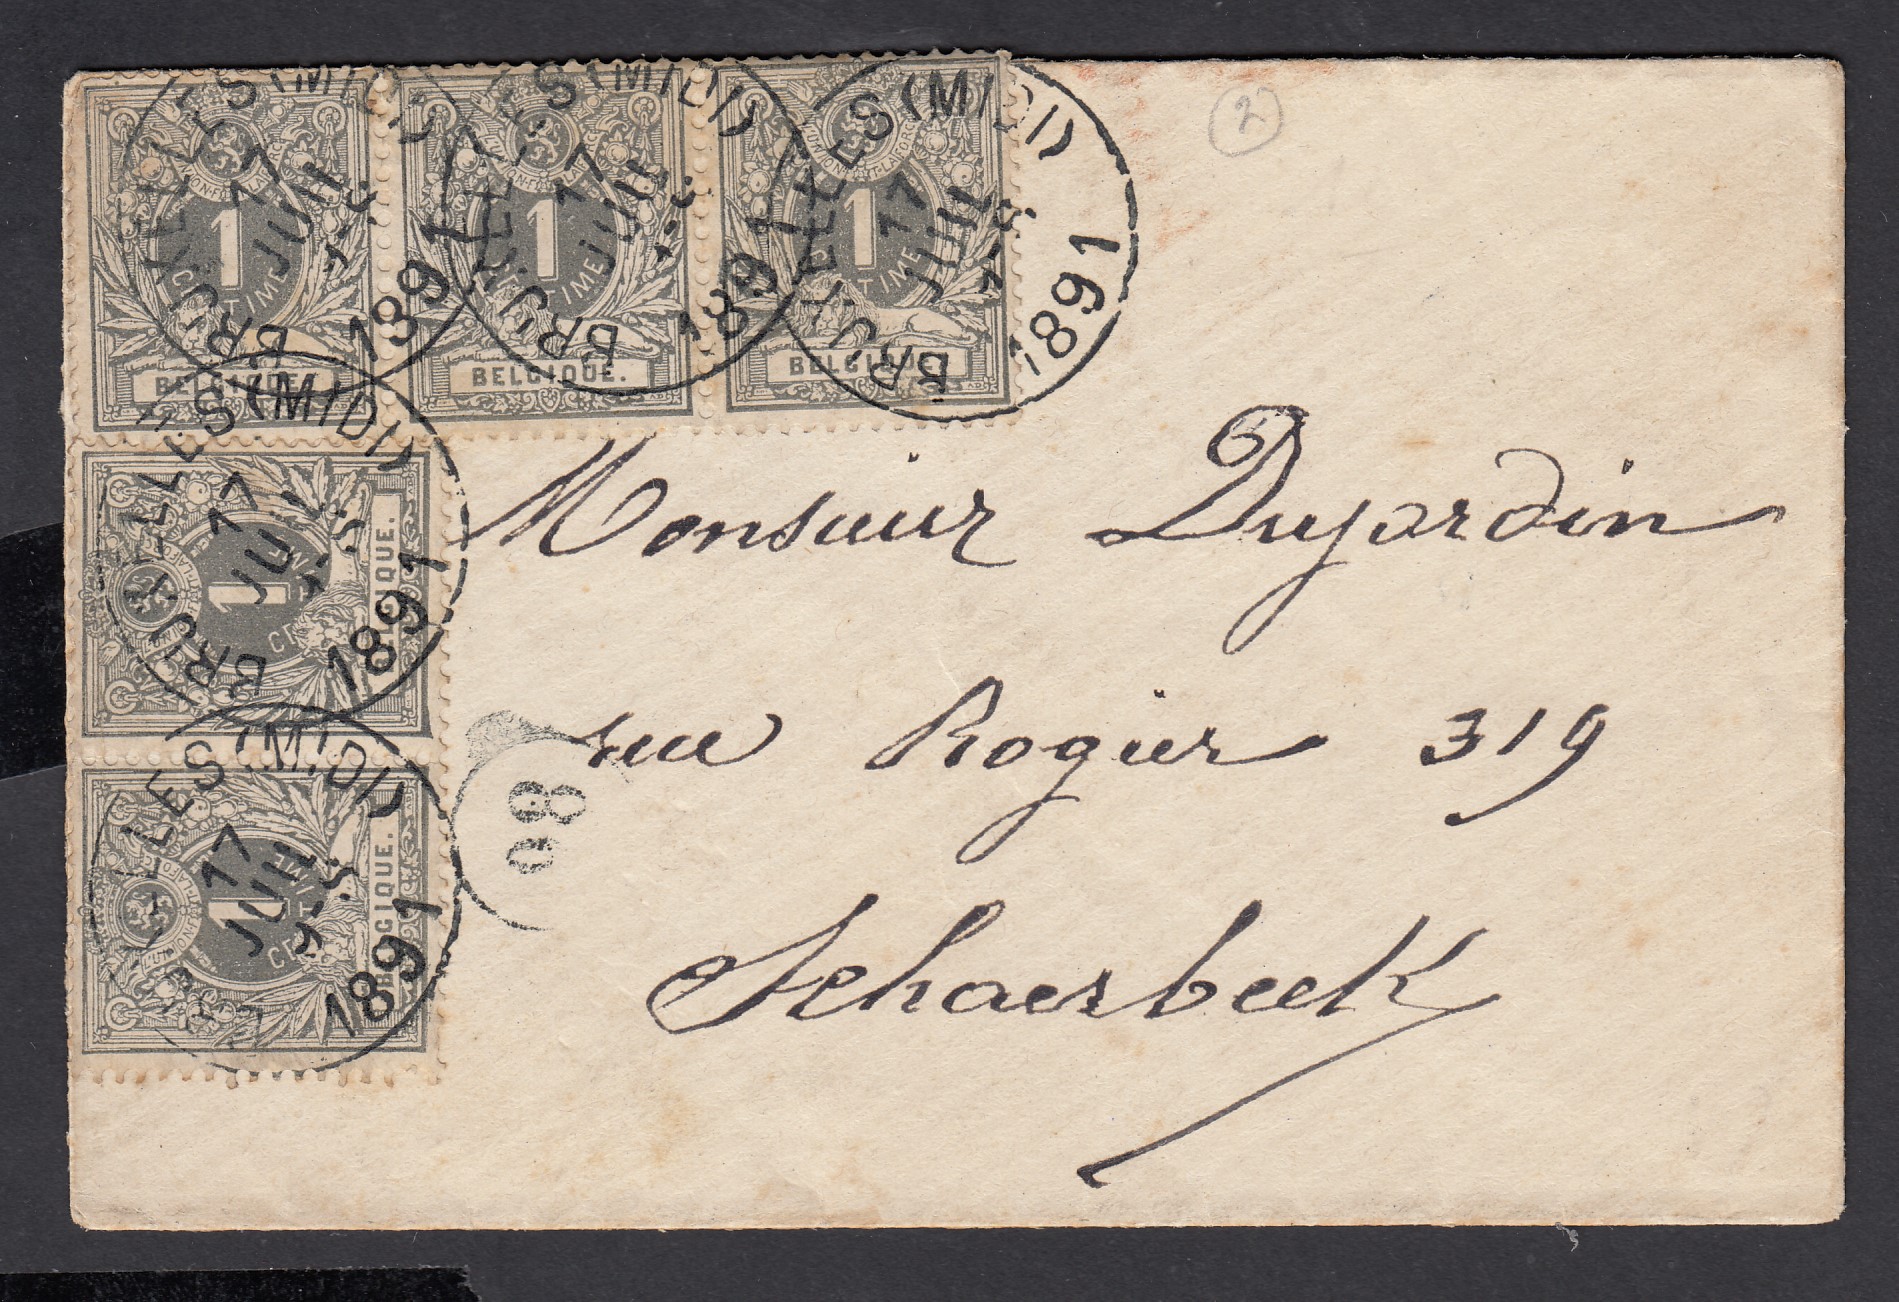 BRUXELLES (MIDI)
17
JUIL
7-S
1891
BRUXELLES (MIDI)
17
JUIL
7-S
1891
BRUXELLES (MIDI)
17
JUIL
7-S
1891
1
CENTIME
BELGIQUE.
1
CENTIME
BELGIQUE.
1
CENTIME
BELGIQUE.
2
BRUXELLES (MIDI)
17
JUIL
7-S
1891
1
BELGIQUE.
BRUXELLES (MIDI)
17
JUIL
7-S
1891
1
BELGIQUE.
80
Monsieur Dujardin
rue Rogier 319
Schaerbeek